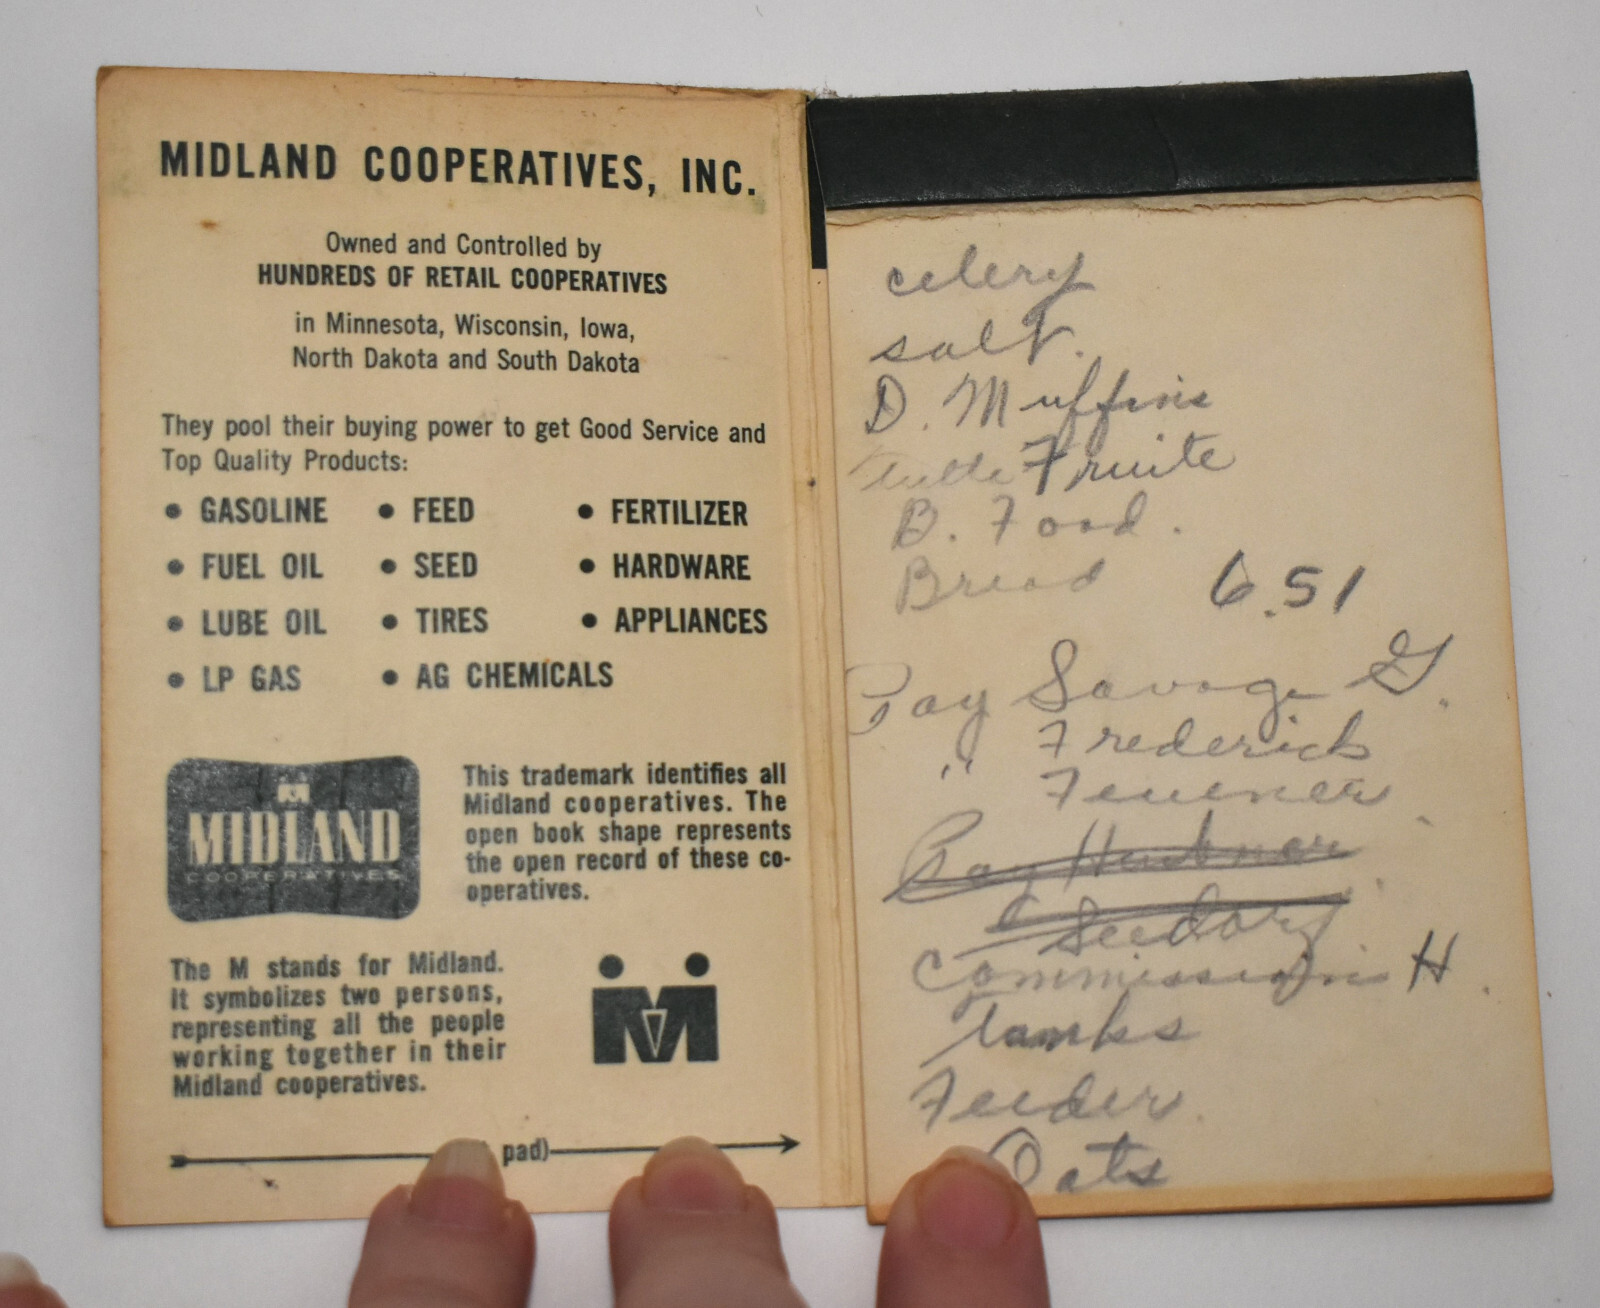 MIDLAND COOPERATIVES, INC.
Owned and Controlled by
HUNDREDS OF RETAIL COOPERATIVES
in Minnesota, Wisconsin, Iowa,
North Dakota and South Dakota
They pool their buying power to get Good Service and
Top Quality Products:
• GASOLINE • FEED • FERTILIZER
• FUEL OIL • SEED • HARDWARE
• LUBE OIL • TIRES • APPLIANCES
• LP GAS • AG CHEMICALS
M
MIDLAND
COOPERATIVES
This trademark identifies all
Midland cooperatives. The
open book shape represents
the open record of these co-
operatives.
The M stands for Midland.
It symbolizes two persons,
representing all the people
working together in their
Midland cooperatives.
M
pad)
celery
salt.
D. Muffins
Fruite
B. Food.
Bread 6.51
Pay Savage G.
" Frederick
Pay
Commission H.
Tanks
Feeder
Oats